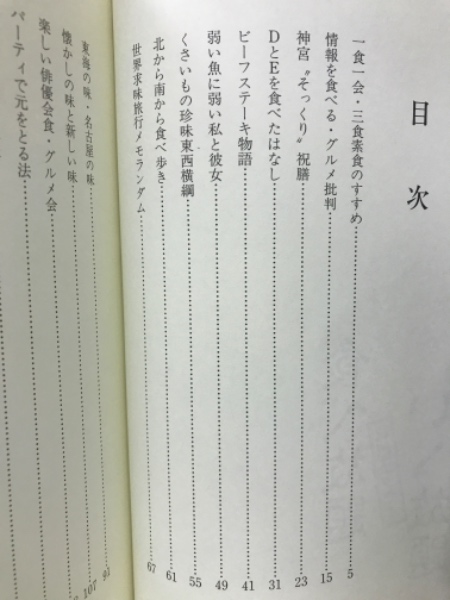 目次
一食一会・三食素食のすすめ 5
情報を食べる・グルメ批判 15
神宮〝そっくり〟祝膳 23
DとEを食べたはなし 31
ビーフステーキ物語 41
弱い魚に弱い私と彼女 49
くさいもの珍味東西横綱 55
北から南から食べ歩き 61
世界求味旅行メモランダム 67
東海の味・名古屋の味 91
懐かしの味と新しい味 107
楽しい俳優会食・グルメ会
パーティで元をとる法